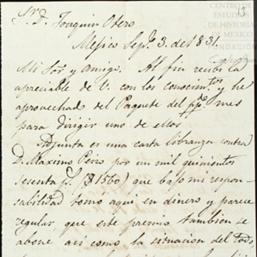 Sr. D. Joaquin Otero
Mejico Sep.e 3. del 831
Mi Sor. y Amigo. Al fin recibi la
apreciable de V. con los conocimtos. y he
aprovechado del Paquete del ppdo. mes
para dirigir uno de ellos.
Adjunta es una carta libranza contra
D. Maximo Perio por un mil quinientos
sesenta ps. ($1560) que bajo mi respon-
sabilidad tomo aqui en dinero y parece
regular que este premio tambien se
abone asi como, la situacion del todo,
CENTRO DE
ESTUDIOS
DE HISTORIA
DE MEXICO
FUNDACIÓN